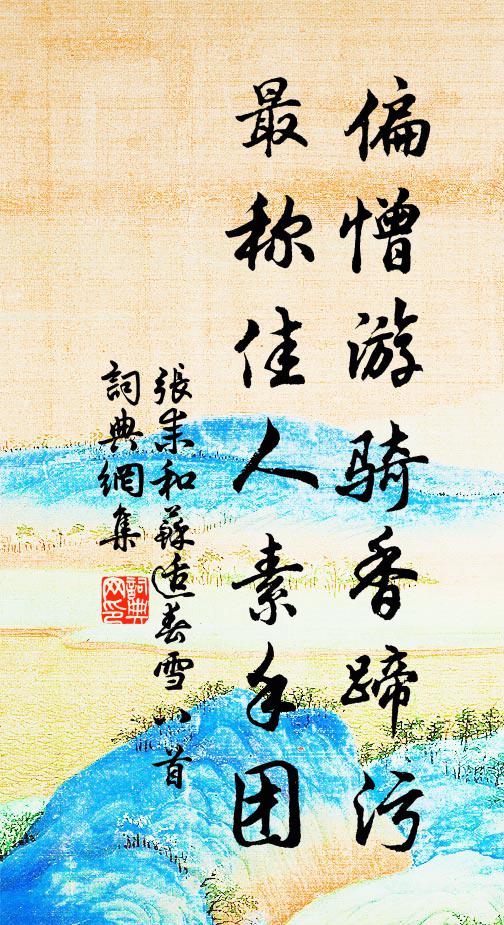 偏憎游骑香蹄污
最称佳人素手团
張耒和蘇适春雪八首
詞典網集
詞典